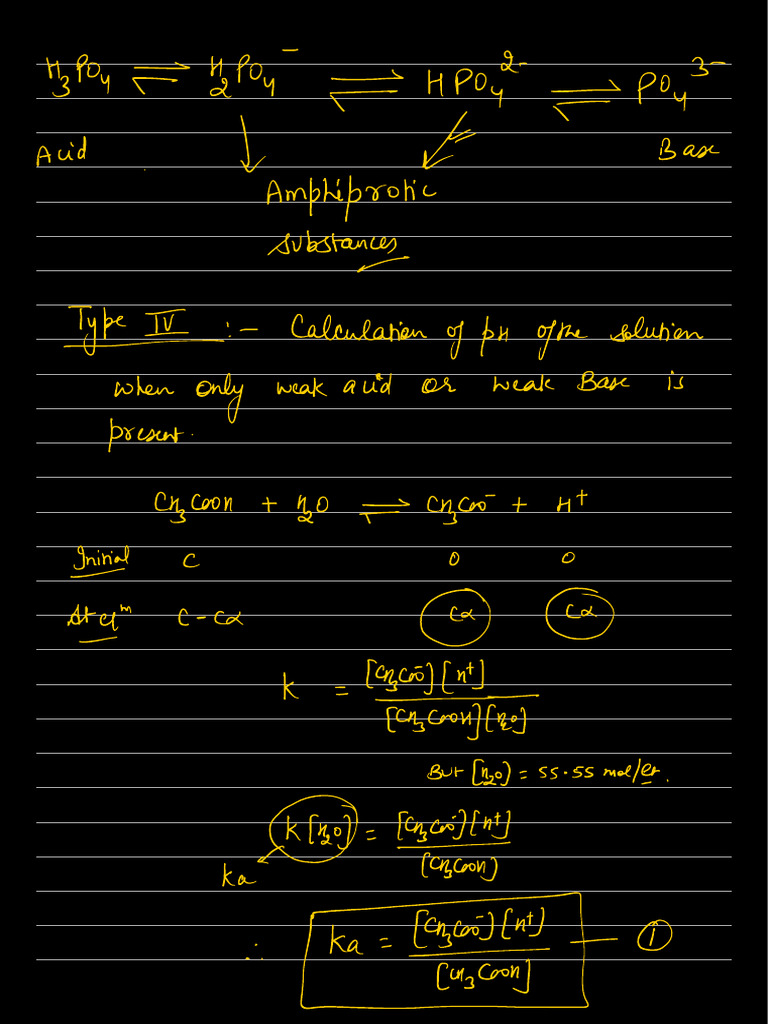 H₃PO₄ ⇌ H₂PO₄⁻ ⇌ HPO₄²⁻ ⇌ PO₄³⁻
Acid Base
Amphiprotic
substances
Type IV :- Calculation of pH of the solution
when only weak acid or weak Base is
present.
CH₃COOH + H₂O ⇌ CH₃COO⁻ + H⁺
Initial C 0 0
At eqᵐ C-Cα Cα Cα
K = [CH₃COO⁻][H⁺] / [CH₃COOH][H₂O]
But [H₂O] = 55.55 mol/lit.
K[H₂O] = [CH₃COO⁻][H⁺] / [CH₃COOH]
Ka
∴ Ka = [CH₃COO⁻][H⁺] / [CH₃COOH] — ①